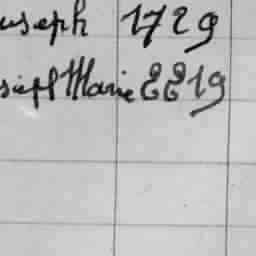 useph 1729
Marie EE19